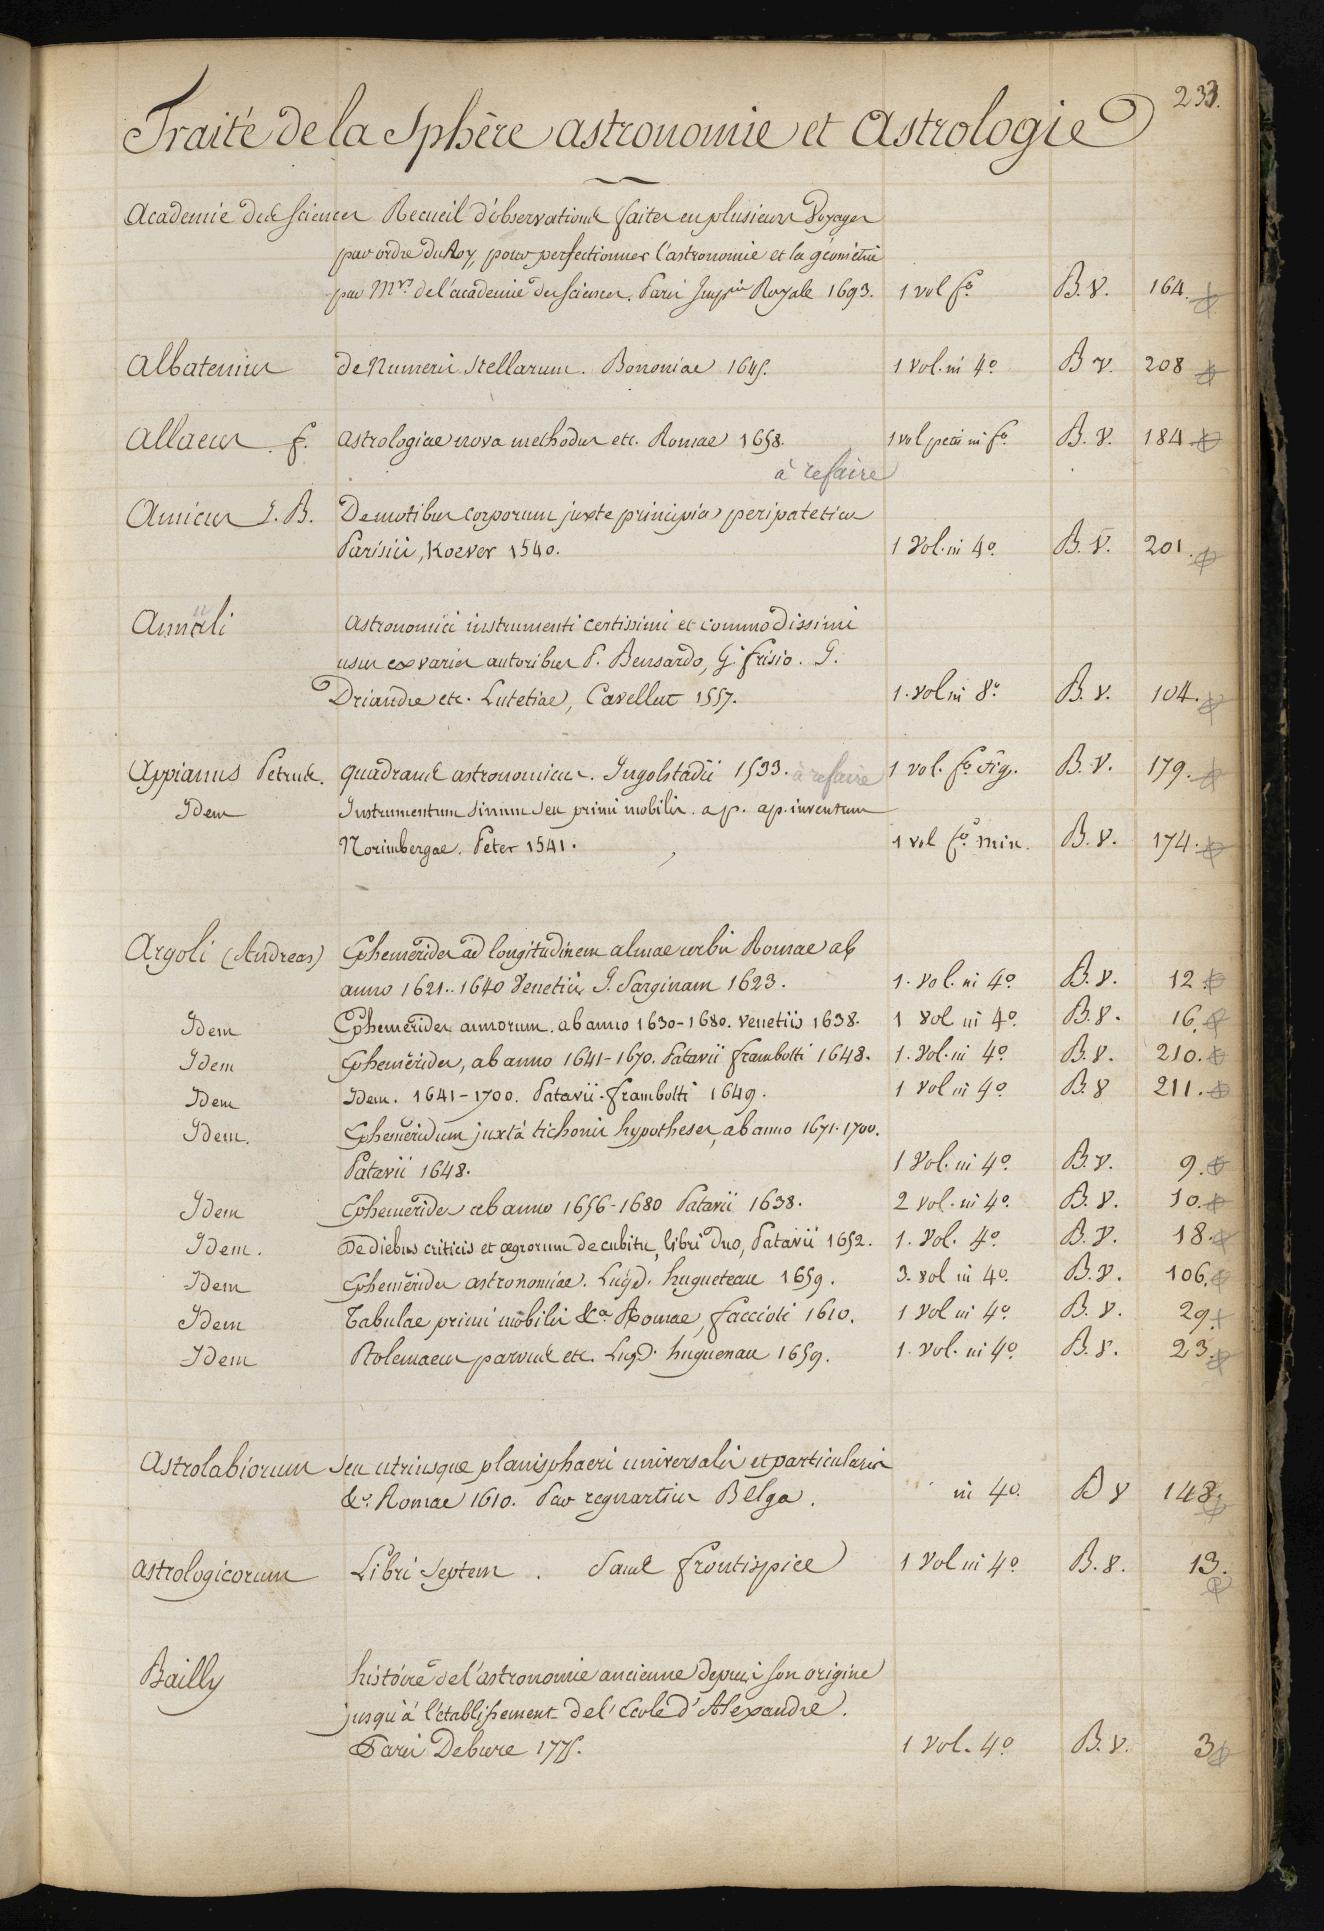 233.
Traité de la Sphère astronomie et Astrologie
Academie des Sciences Recueil d'observations faites en plusieurs Voyages
par ordre du Roy, pour perfectionner l'astronomie et la géometrie
par Mrs. de l'academie des sciences. Paris Imprie Royale 1693. 1 vol fo. B. V. 164.
Albatenius de Numeris Stellarum. Bononiae 1645. 1 vol. in 4o. B V. 208
Allaeus f. Astrologiae nova methodus etc. Romae 1658. 1 vol petit in fo. B. V. 184
à refaire
Amicus I. B. De motibus corporum juxte principia peripatetica
Parisiis, Koever 1540. 1 Vol. in 4o. B. V. 201.
Annuli astronomici instrumenti certissimi et commodissimi
usus ex variis autoribus P. Bensardo, G. frisio. G.
Driandre etc. Lutetiae, Cavellat 1557. 1. vol in 8o. B. V. 104.
Appianus Petrus. quadrans astronomicus. Ingolstadii 1533. à refaire 1 vol. fo. fig. B. V. 179.
Idem Instrumentum sinum seu primi mobilis. a p. ap. inventum
Norimbergae. Peter 1541. 1 vol fo. min. B. V. 174.
Argoli (Andreas) Ephemerides ad longitudinem almae urbis Romae ab
anno 1621.. 1640 Venetiis J. Sarginam 1623. 1. vol. in 4o. B. V. 12
Idem Ephemerides annorum. ab anno 1630-1680. Venetiis 1638. 1 vol in 4o. B. V. 16.
Idem Ephemerides, ab anno 1641-1670. Patavii frambotti 1648. 1. vol. in 4o. B. V. 210.
Idem Idem. 1641-1700. Patavii. frambotti 1649. 1 vol in 4o. B. V 211.
Idem. Ephemeridum juxtà tichonis hypotheses, ab anno 1671-1700.
Patavii 1648. 1 Vol. in 4o. B. V. 9.
Idem Ephemerides ab anno 1656-1680 Patavii 1638. 2 vol. in 4o. B. V. 10.
Idem. De diebus criticis et ægrorum decubitu, libri duo, Patavii 1652. 1. Vol. 4o. B. V. 18.
Idem Ephemerides astronomiae. Lugd. hugueteau 1659. 3. vol in 4o. B. V. 106.
Idem Tabulae primi mobilis &ca Romae, faccioti 1610. 1 vol in 4o. B. V. 29.
Idem Ptolemaeus parvus etc. Lugd. huguenau 1659. 1. vol. in 4o. B. V. 23.
Astrolabiorum seu utriusque planisphaeri universalis et particularis
&c. Romae 1610. Par regnartius Belga. in 4o. B V 148.
Astrologicorum Libri Septem. Sans frontispice 1 Vol in 4o. B. V. 13.
Bailly histoire de l'astronomie ancienne depuis son origine
jusqu'à l'établissement de l'Ecole d'Alexandre.
Paris Debure 1775. 1 Vol. 4o. B. V. 3